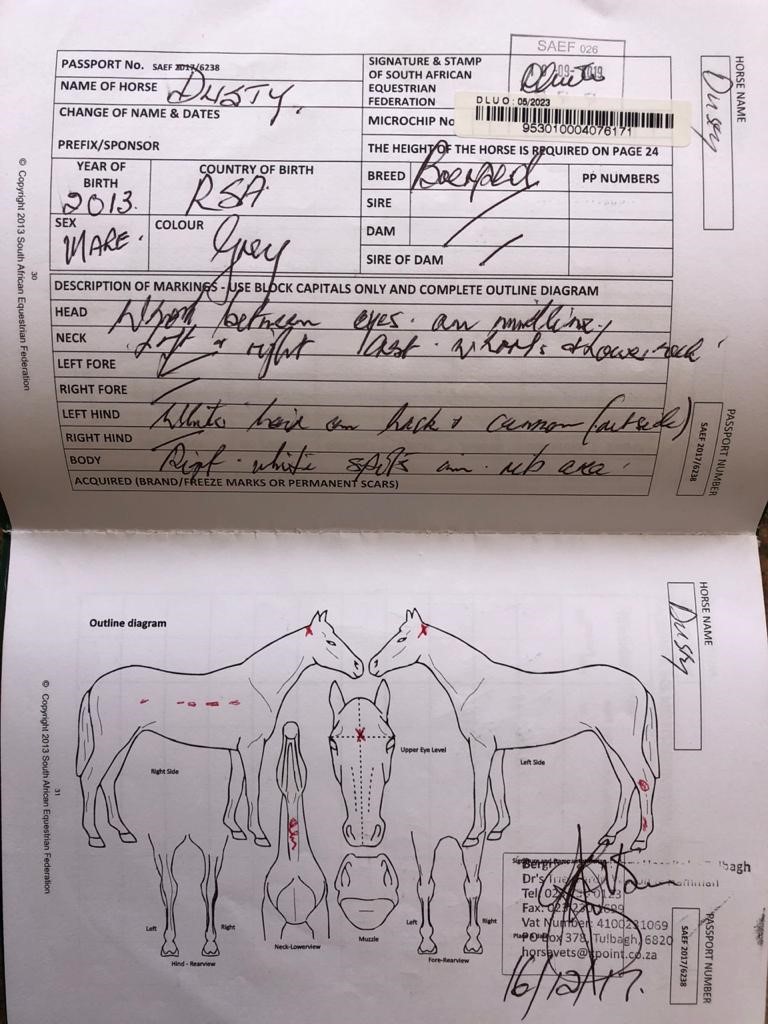 SAEF 026
PASSPORT No. SAEF 2017/6238
NAME OF HORSE DUSTY.
CHANGE OF NAME & DATES
PREFIX/SPONSOR
SIGNATURE & STAMP
OF SOUTH AFRICAN
EQUESTRIAN
FEDERATION
DLUO: 05/2023
MICROCHIP No 953010004076171
THE HEIGHT OF THE HORSE IS REQUIRED ON PAGE 24
YEAR OF BIRTH 2013.
COUNTRY OF BIRTH RSA
BREED Boerperd
PP NUMBERS
SIRE
SEX MARE.
COLOUR Grey
DAM
SIRE OF DAM
DESCRIPTION OF MARKINGS - USE BLOCK CAPITALS ONLY AND COMPLETE OUTLINE DIAGRAM
HEAD Whorl between eyes. on midline.
NECK Left & right
LEFT FORE
RIGHT FORE
LEFT HIND White hair on hock & cannon (outside)
RIGHT HIND
BODY Right. white spots on rib area.
ACQUIRED (BRAND/FREEZE MARKS OR PERMANENT SCARS)
HORSE NAME
Dusty
PASSPORT NUMBER
SAEF 2017/6238
© Copyright 2013 South African Equestrian Federation
30
Outline diagram
Right Side
Upper Eye Level
Left Side
Left
Right
Hind - Rearview
Neck-Lowerview
Muzzle
Left
Right
Fore-Rearview
Dr's
Tel:
Fax:
Vat Number: 4100231069
PO Box 378, Tulbagh, 6820
horsevets@
16/12/17.
HORSE NAME
Dusty
PASSPORT NUMBER
SAEF 2017/6238
© Copyright 2013 South African Equestrian Federation
31